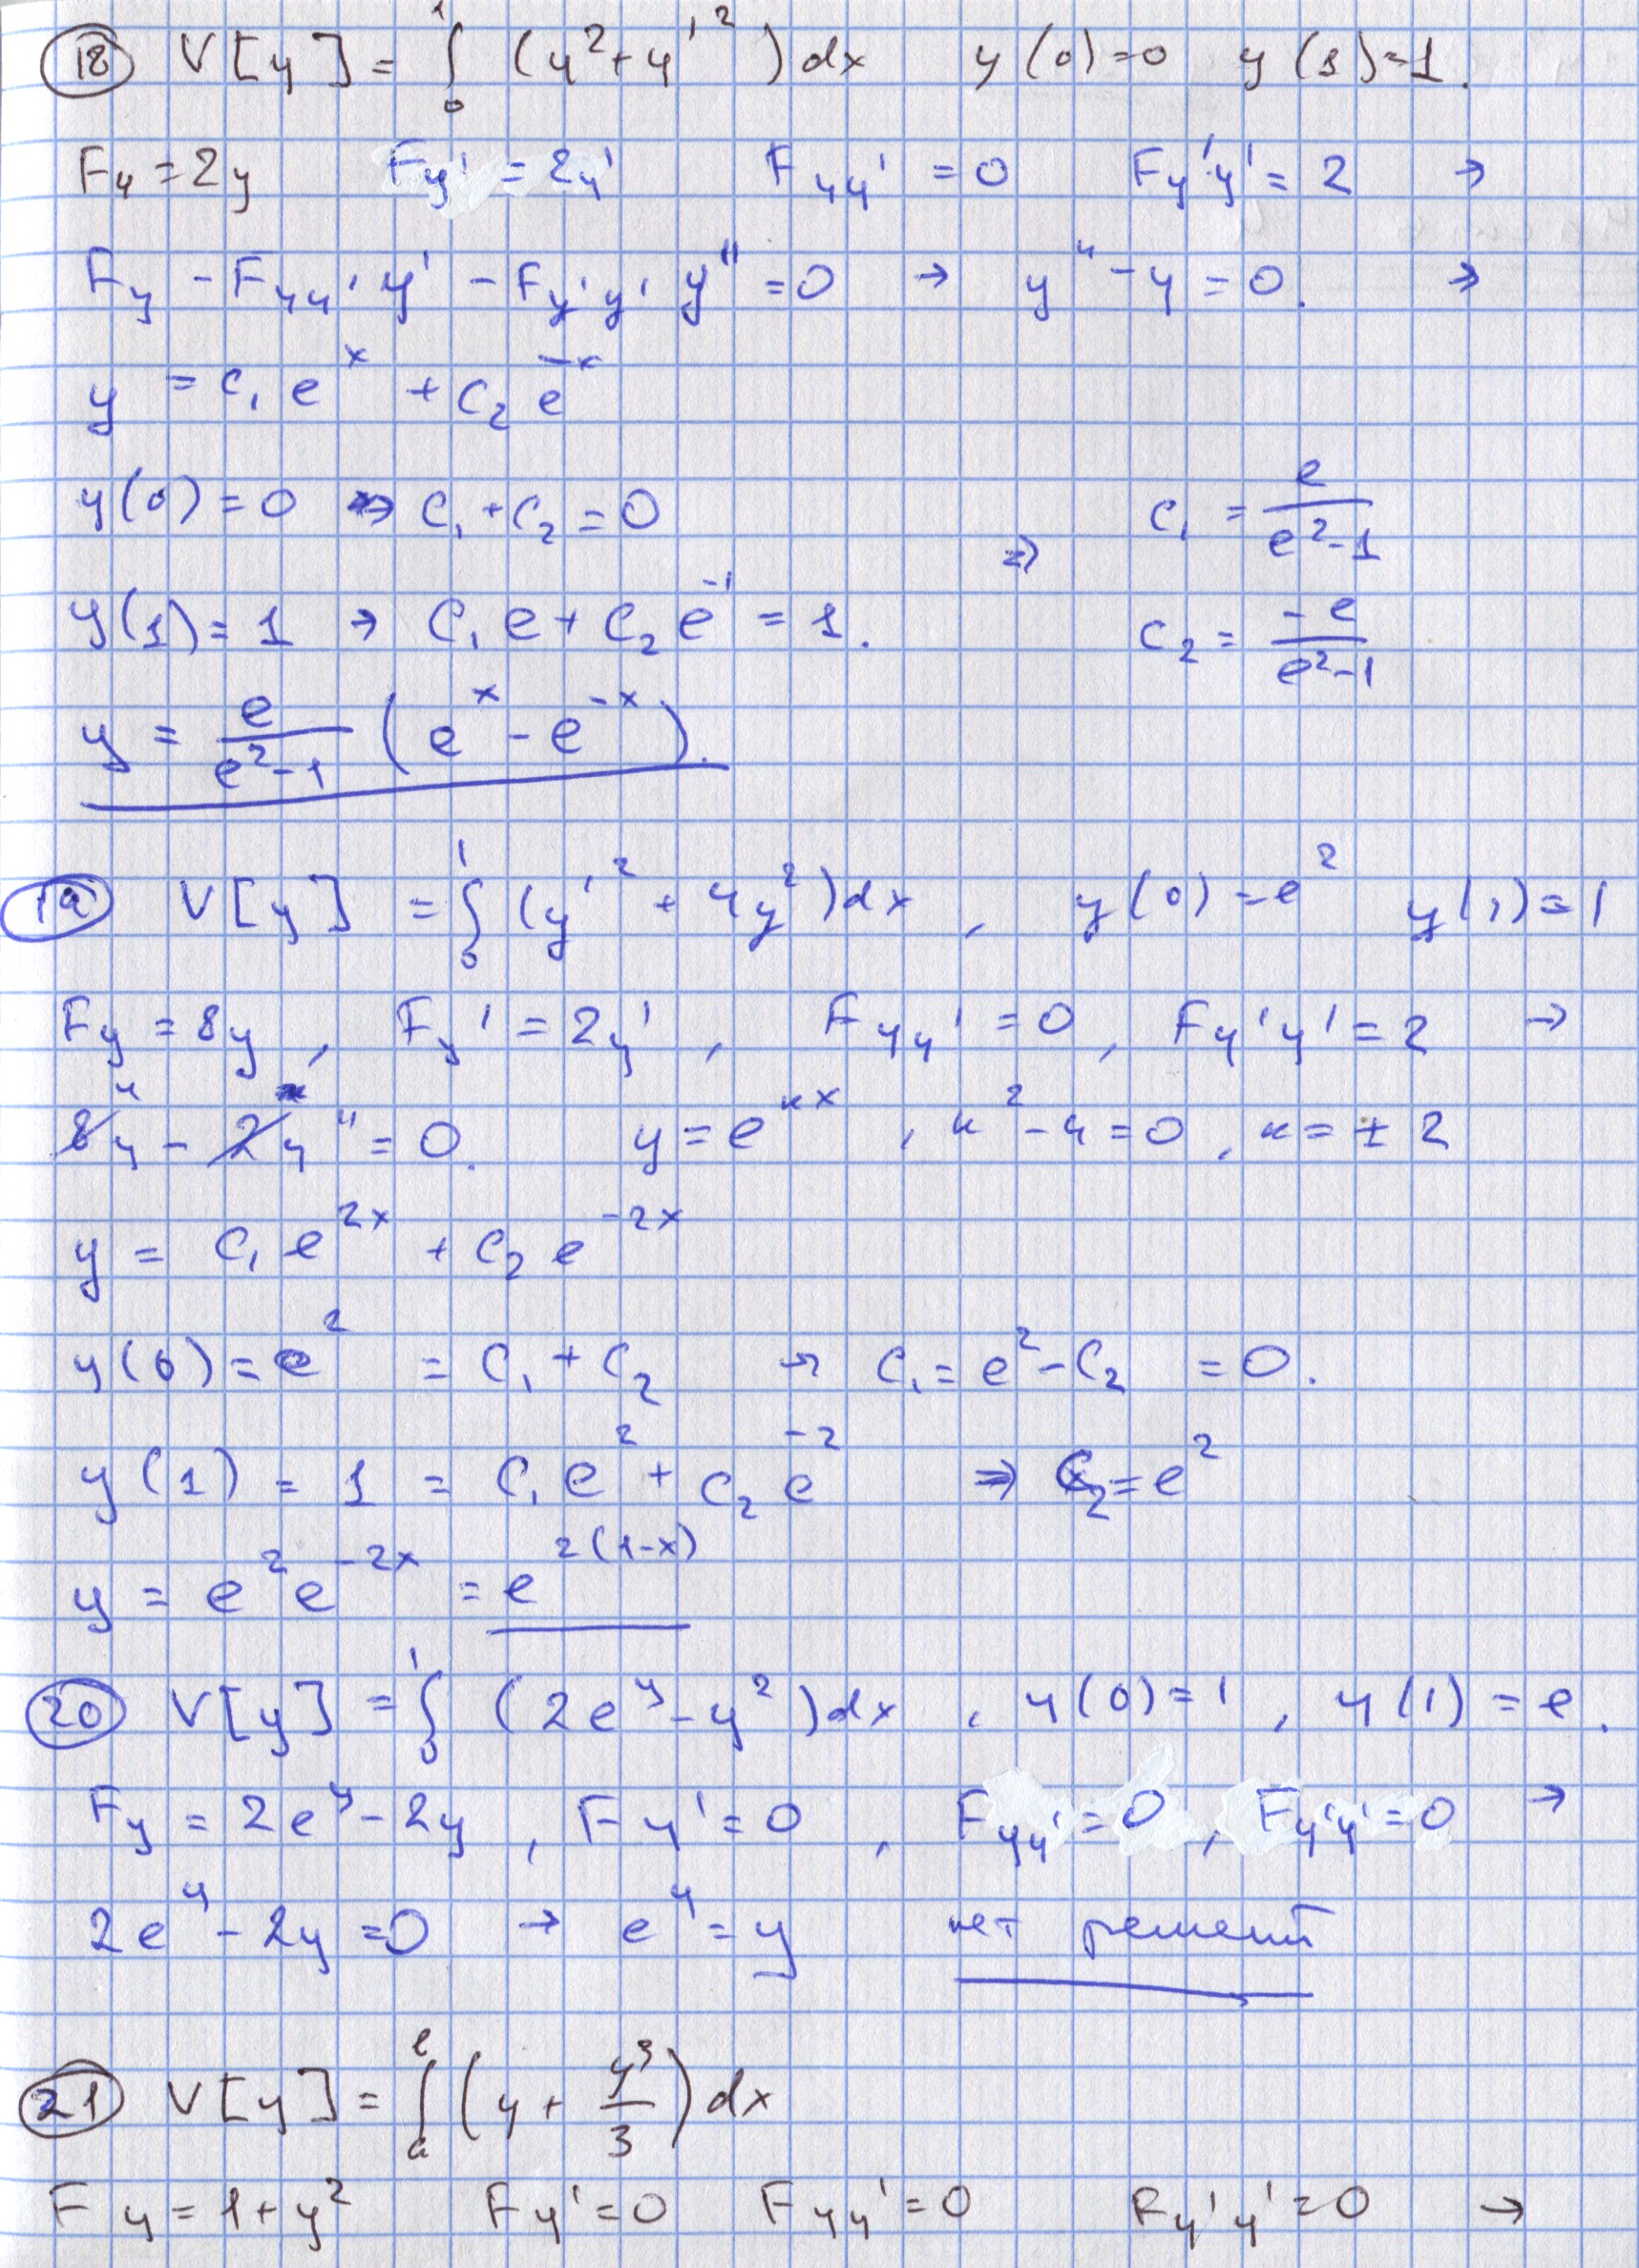 (18) V[y] = ∫₀¹ (y² + y'²) dx y(0)=0 y(1)=1.
Fy = 2y Fy' = 2y' Fyy' = 0 Fy'y' = 2 →
Fy − Fyy' y' − Fy'y' y'' = 0 → y'' − y = 0. →
y = c₁ eˣ + c₂ e⁻ˣ
y(0) = 0 → c₁ + c₂ = 0 ⇒ c₁ = e/(e²−1)
y(1) = 1 → c₁ e + c₂ e⁻¹ = 1. c₂ = −e/(e²−1)
y = e/(e²−1) (eˣ − e⁻ˣ).
(19) V[y] = ∫₀¹ (y'² + 4y²) dx, y(0) = e² y(1) = 1
Fy = 8y, Fy' = 2y', Fyy' = 0, Fy'y' = 2 →
4y − y'' = 0. y = e^{kx}, k² − 4 = 0, k = ± 2
y = c₁ e^{2x} + c₂ e^{−2x}
y(0) = e² = c₁ + c₂ → c₁ = e² − c₂ = 0.
y(1) = 1 = c₁ e² + c₂ e⁻² ⇒ c₂ = e²
y = e² e^{−2x} = e^{2(1−x)}
(20) V[y] = ∫₀¹ (2e^y − y²) dx, y(0) = 1, y(1) = e.
Fy = 2e^y − 2y, Fy' = 0, Fyy' = 0, Fy'y' = 0 →
2e^y − 2y = 0 → e^y = y нет решений
(21) V[y] = ∫ₐᵉ (y + y³/3) dx
Fy = 1 + y² Fy' = 0 Fyy' = 0 Fy'y' = 0 →